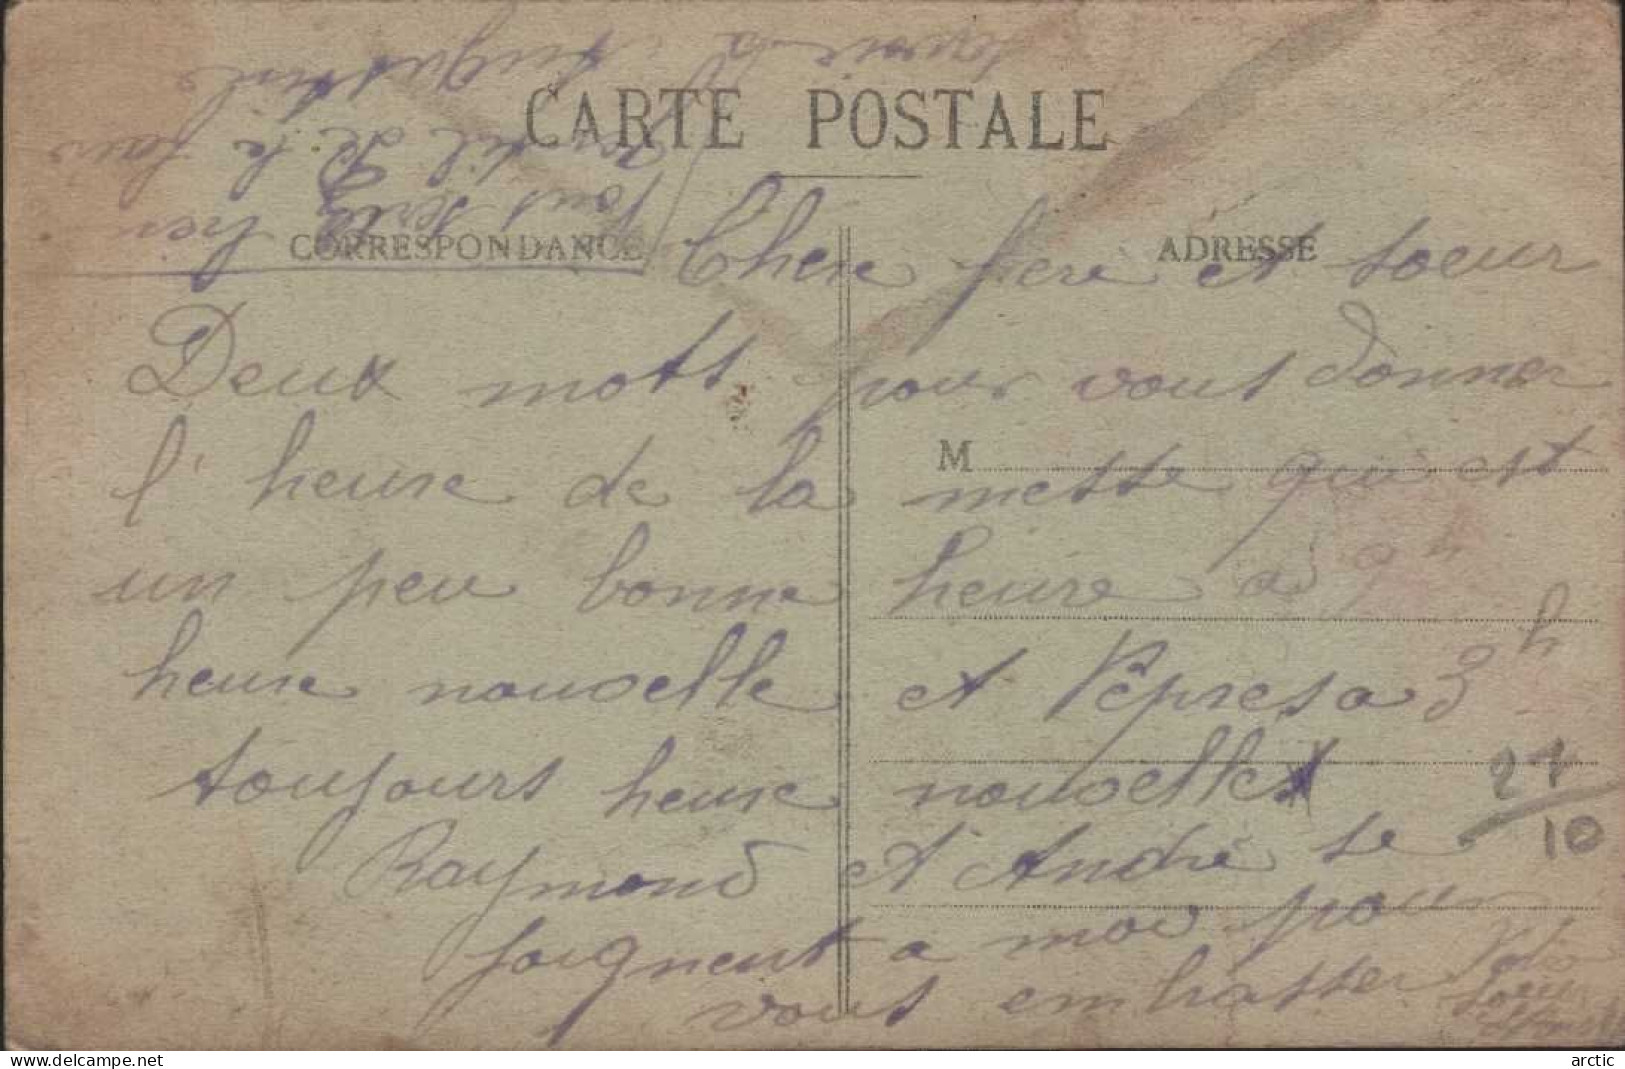 CARTE POSTALE
CORRESPONDANCE
ADRESSE
M
Chere frere et soeur
Deux mots pour vous donner
l'heure de la messe qui est
un peu bonne heure a 9h
heure nouvelle et Vêpres a 3h
toujours heure nouvelle
Raymond et André se
joignent a moi pour
vous embrasser
21/10
hier
je fais
delcampe.net
arctic